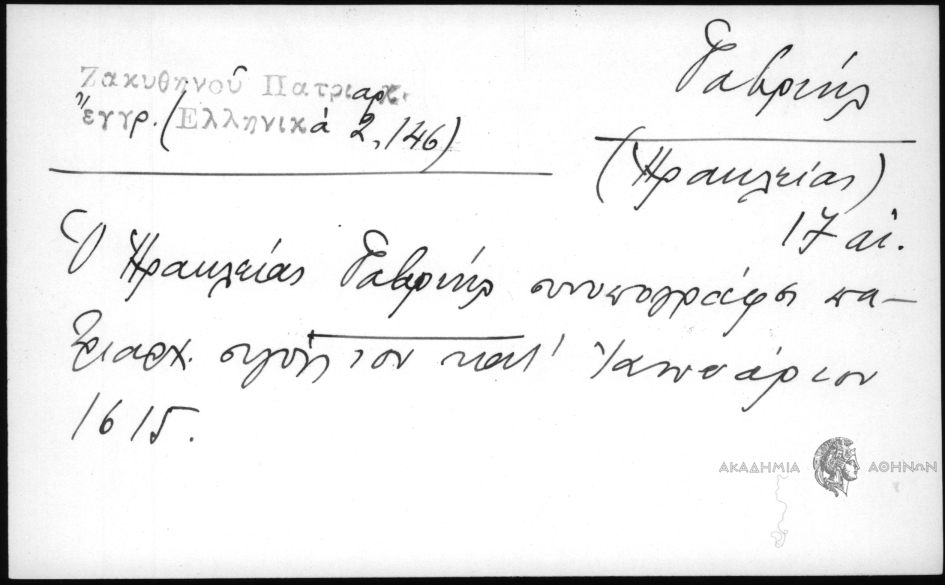 Ζακυθηνοῦ Πατριαρχ.
ἔγγρ. (Ἑλληνικά 2, 146)
Γαβριήλ
(Ἡρακλείας)
17 αἰ.
Ὁ Ἡρακλείας Γαβριήλ συνυπογράφει πα-
τριαρχ. σιγίλ. τον κατ' Ἰανουάριον
1615.
ΑΚΑΔΗΜΙΑ ΑΘΗΝΩΝ